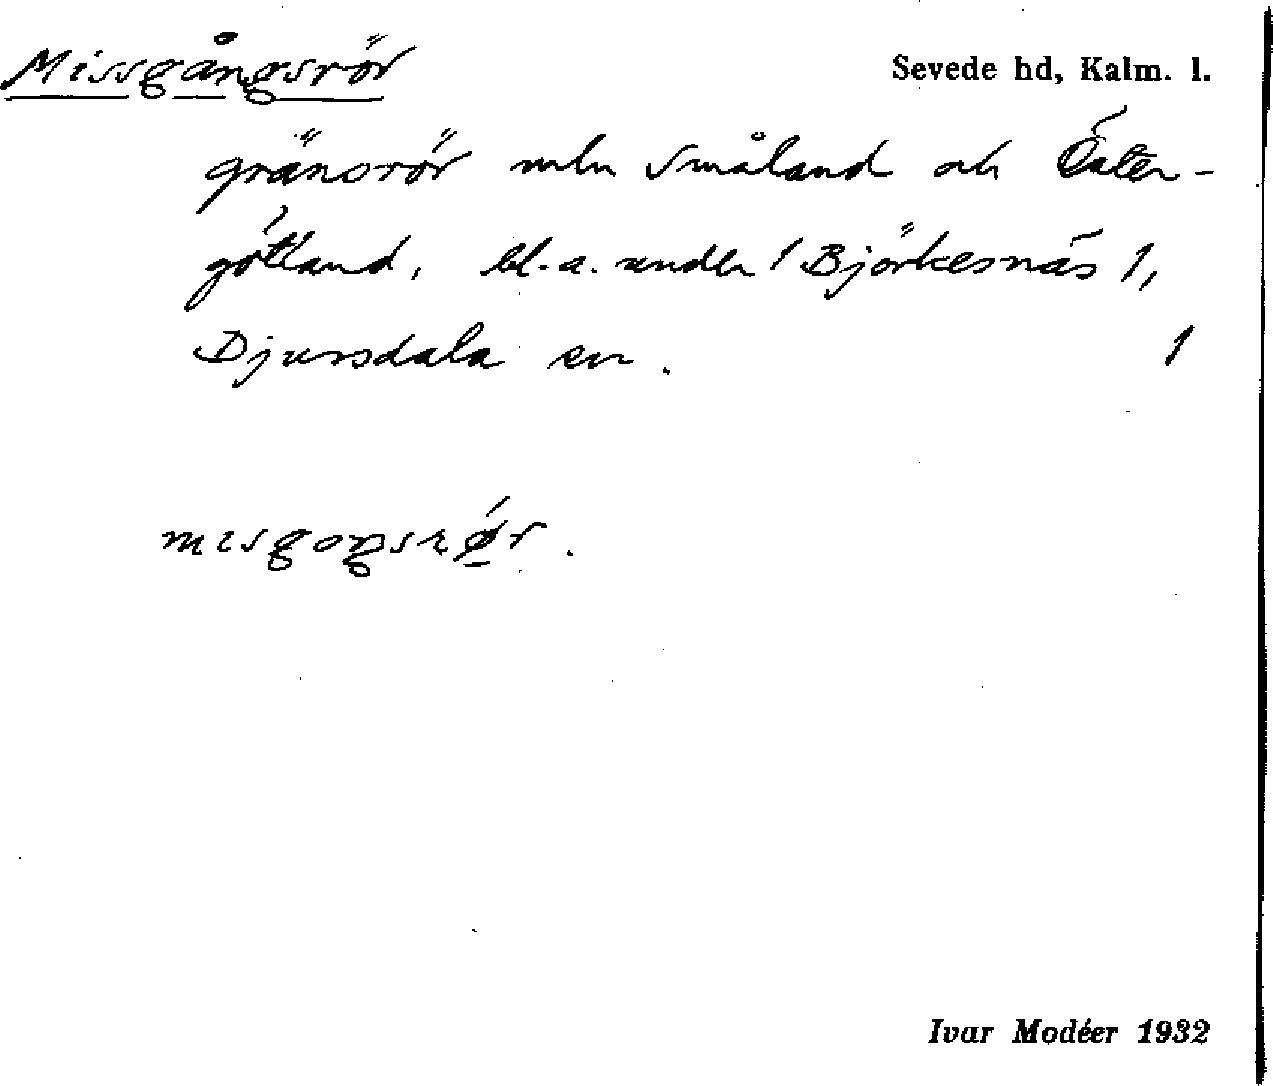 Missgångsrör
Sevede hd, Kalm. l.
gränsrör mln Småland och Öster-
götland, bl. a. under / Björkesnäs 1,
Djursdala sn. 1
Ivar Modéer 1932